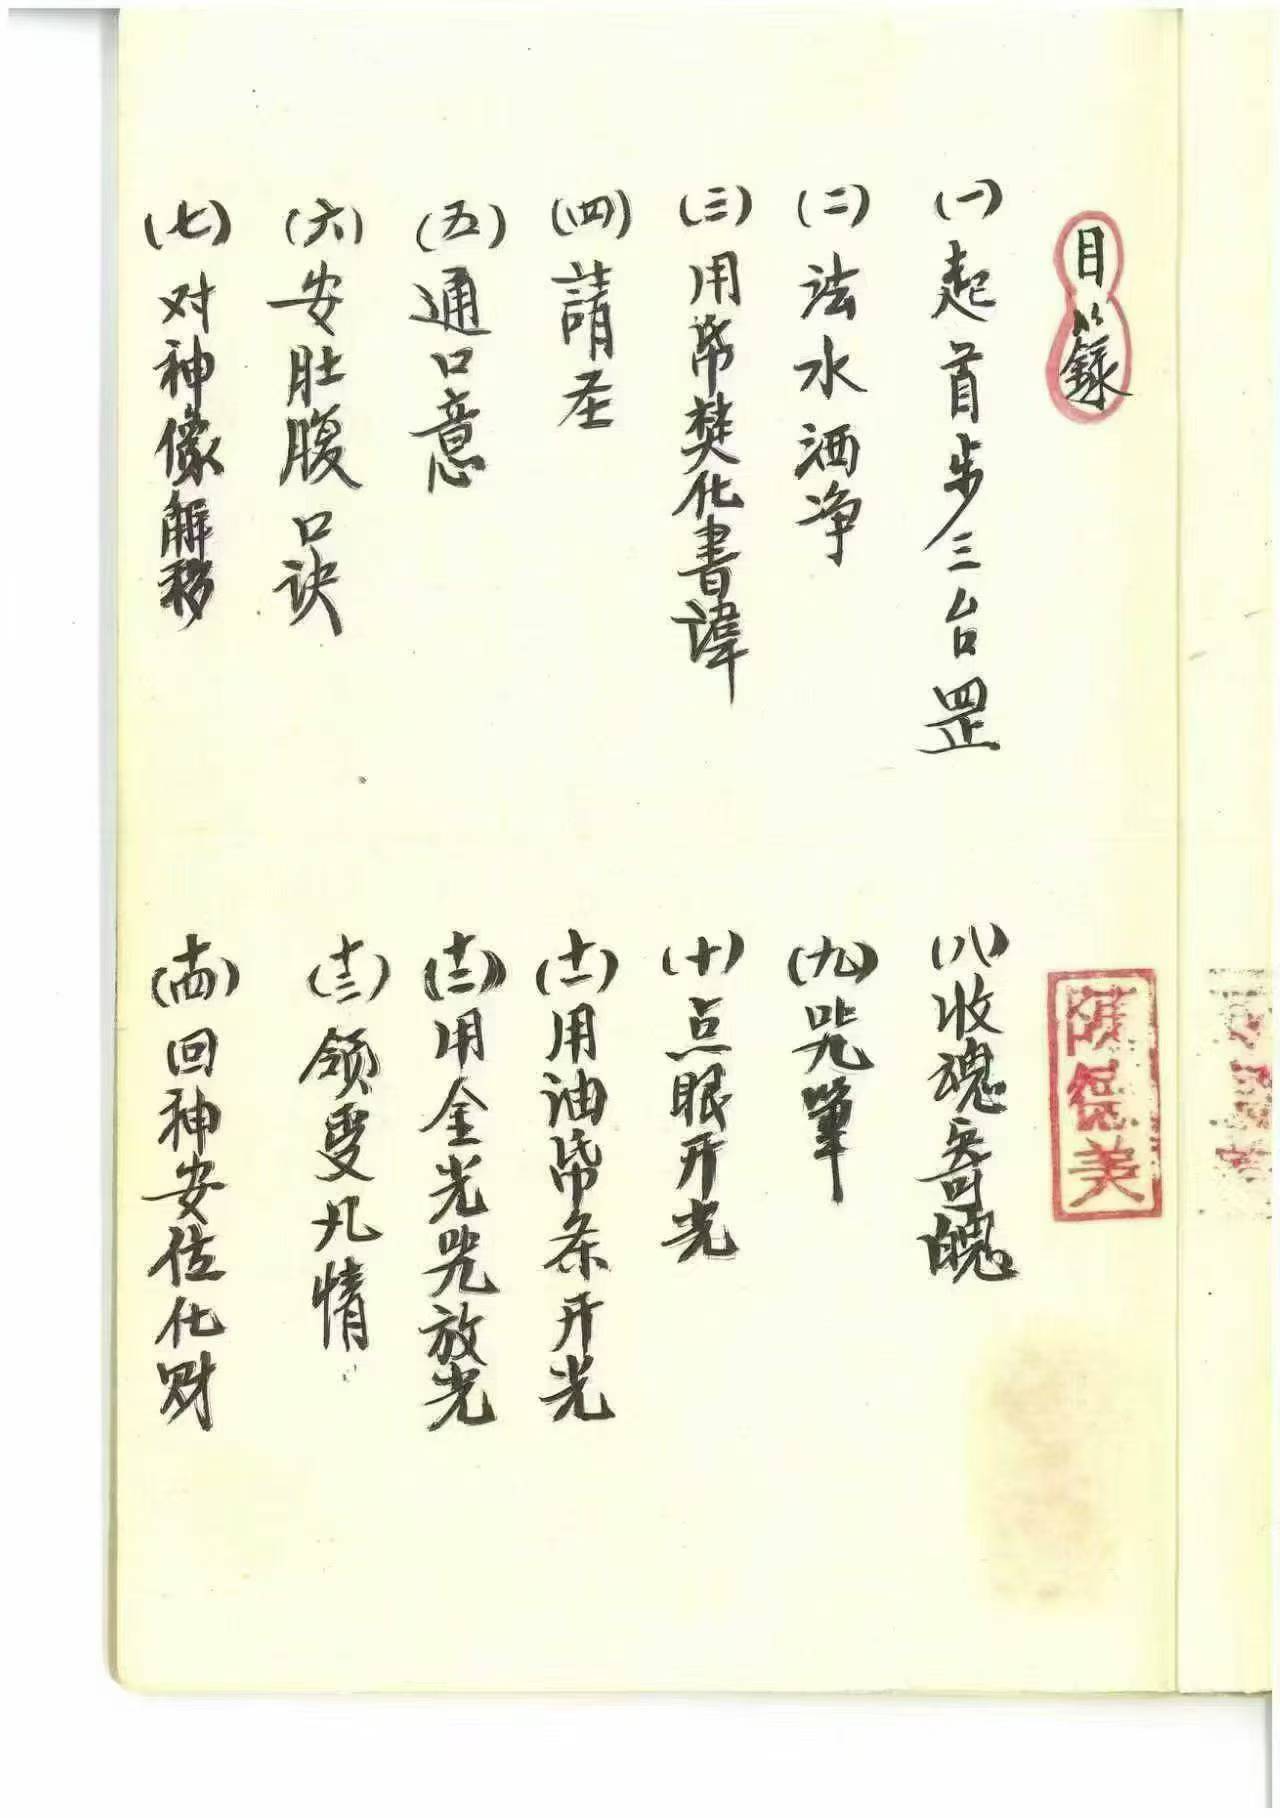 目錄
(一)起首步三台罡
(二)法水洒净
(三)用帋焚化書諱
(四)請圣
(五)通口意
(六)安肚腹口诀
(七)对神像解秽
(八)收魂寄魄
(九)咒筆
(十)点眼开光
(十一)用油帋条开光
(十二)用金光咒放光
(十三)领受凡情
(十四)回神安位化财
德美